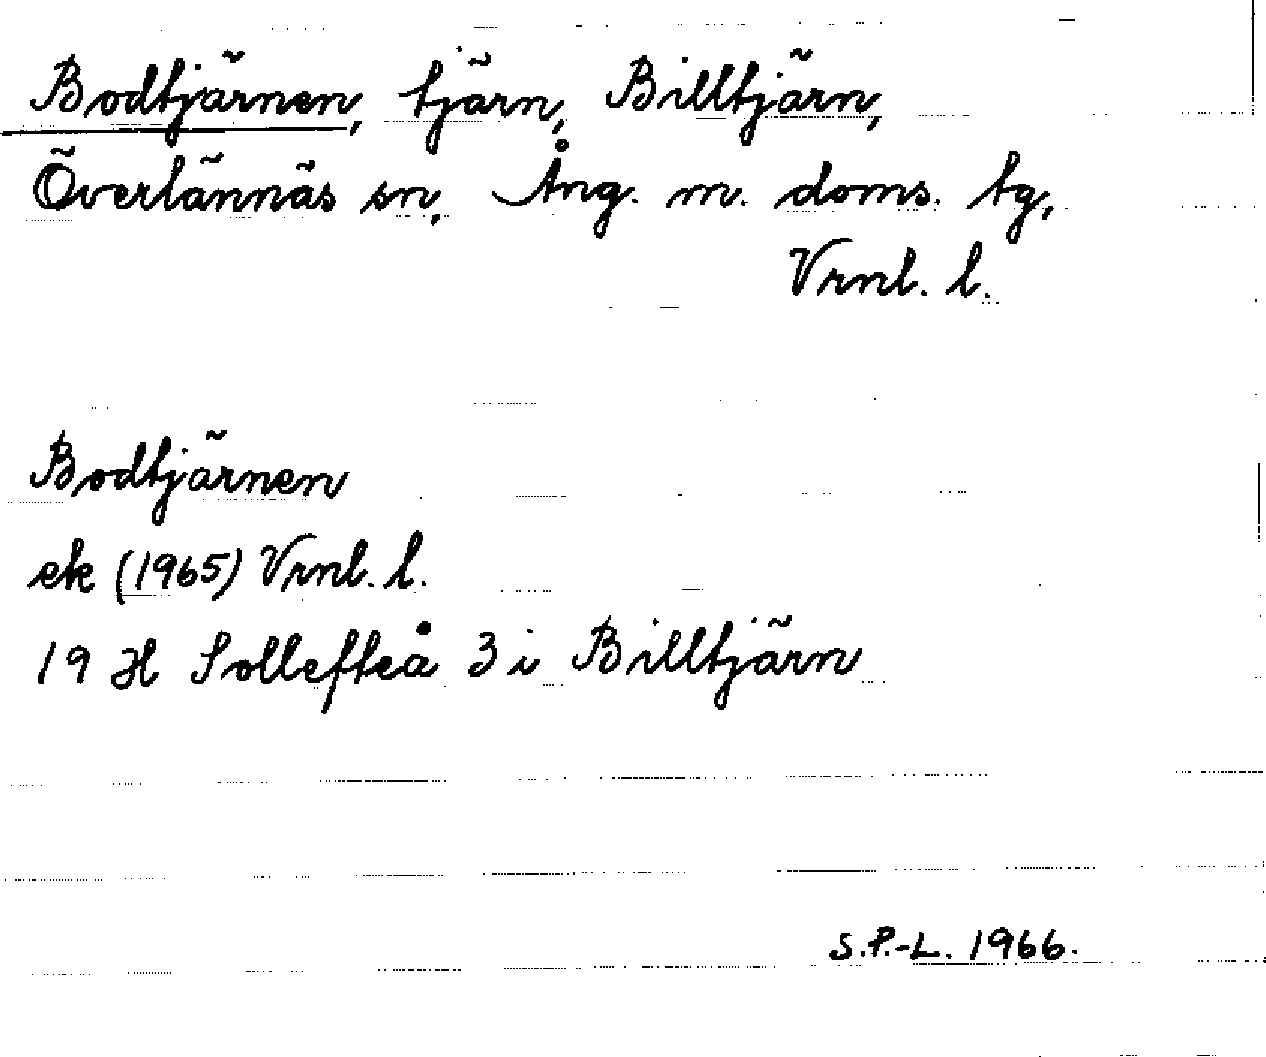 Bodtjärnen, tjärn, Billtjärn,
Överlännäs sn, Ång. m. doms. tg,
Vrnl. l.
Bodtjärnen
ek (1965) Vrnl. l.
19 H Sollefteå 3 i Billtjärn
S.P.-L. 1966.